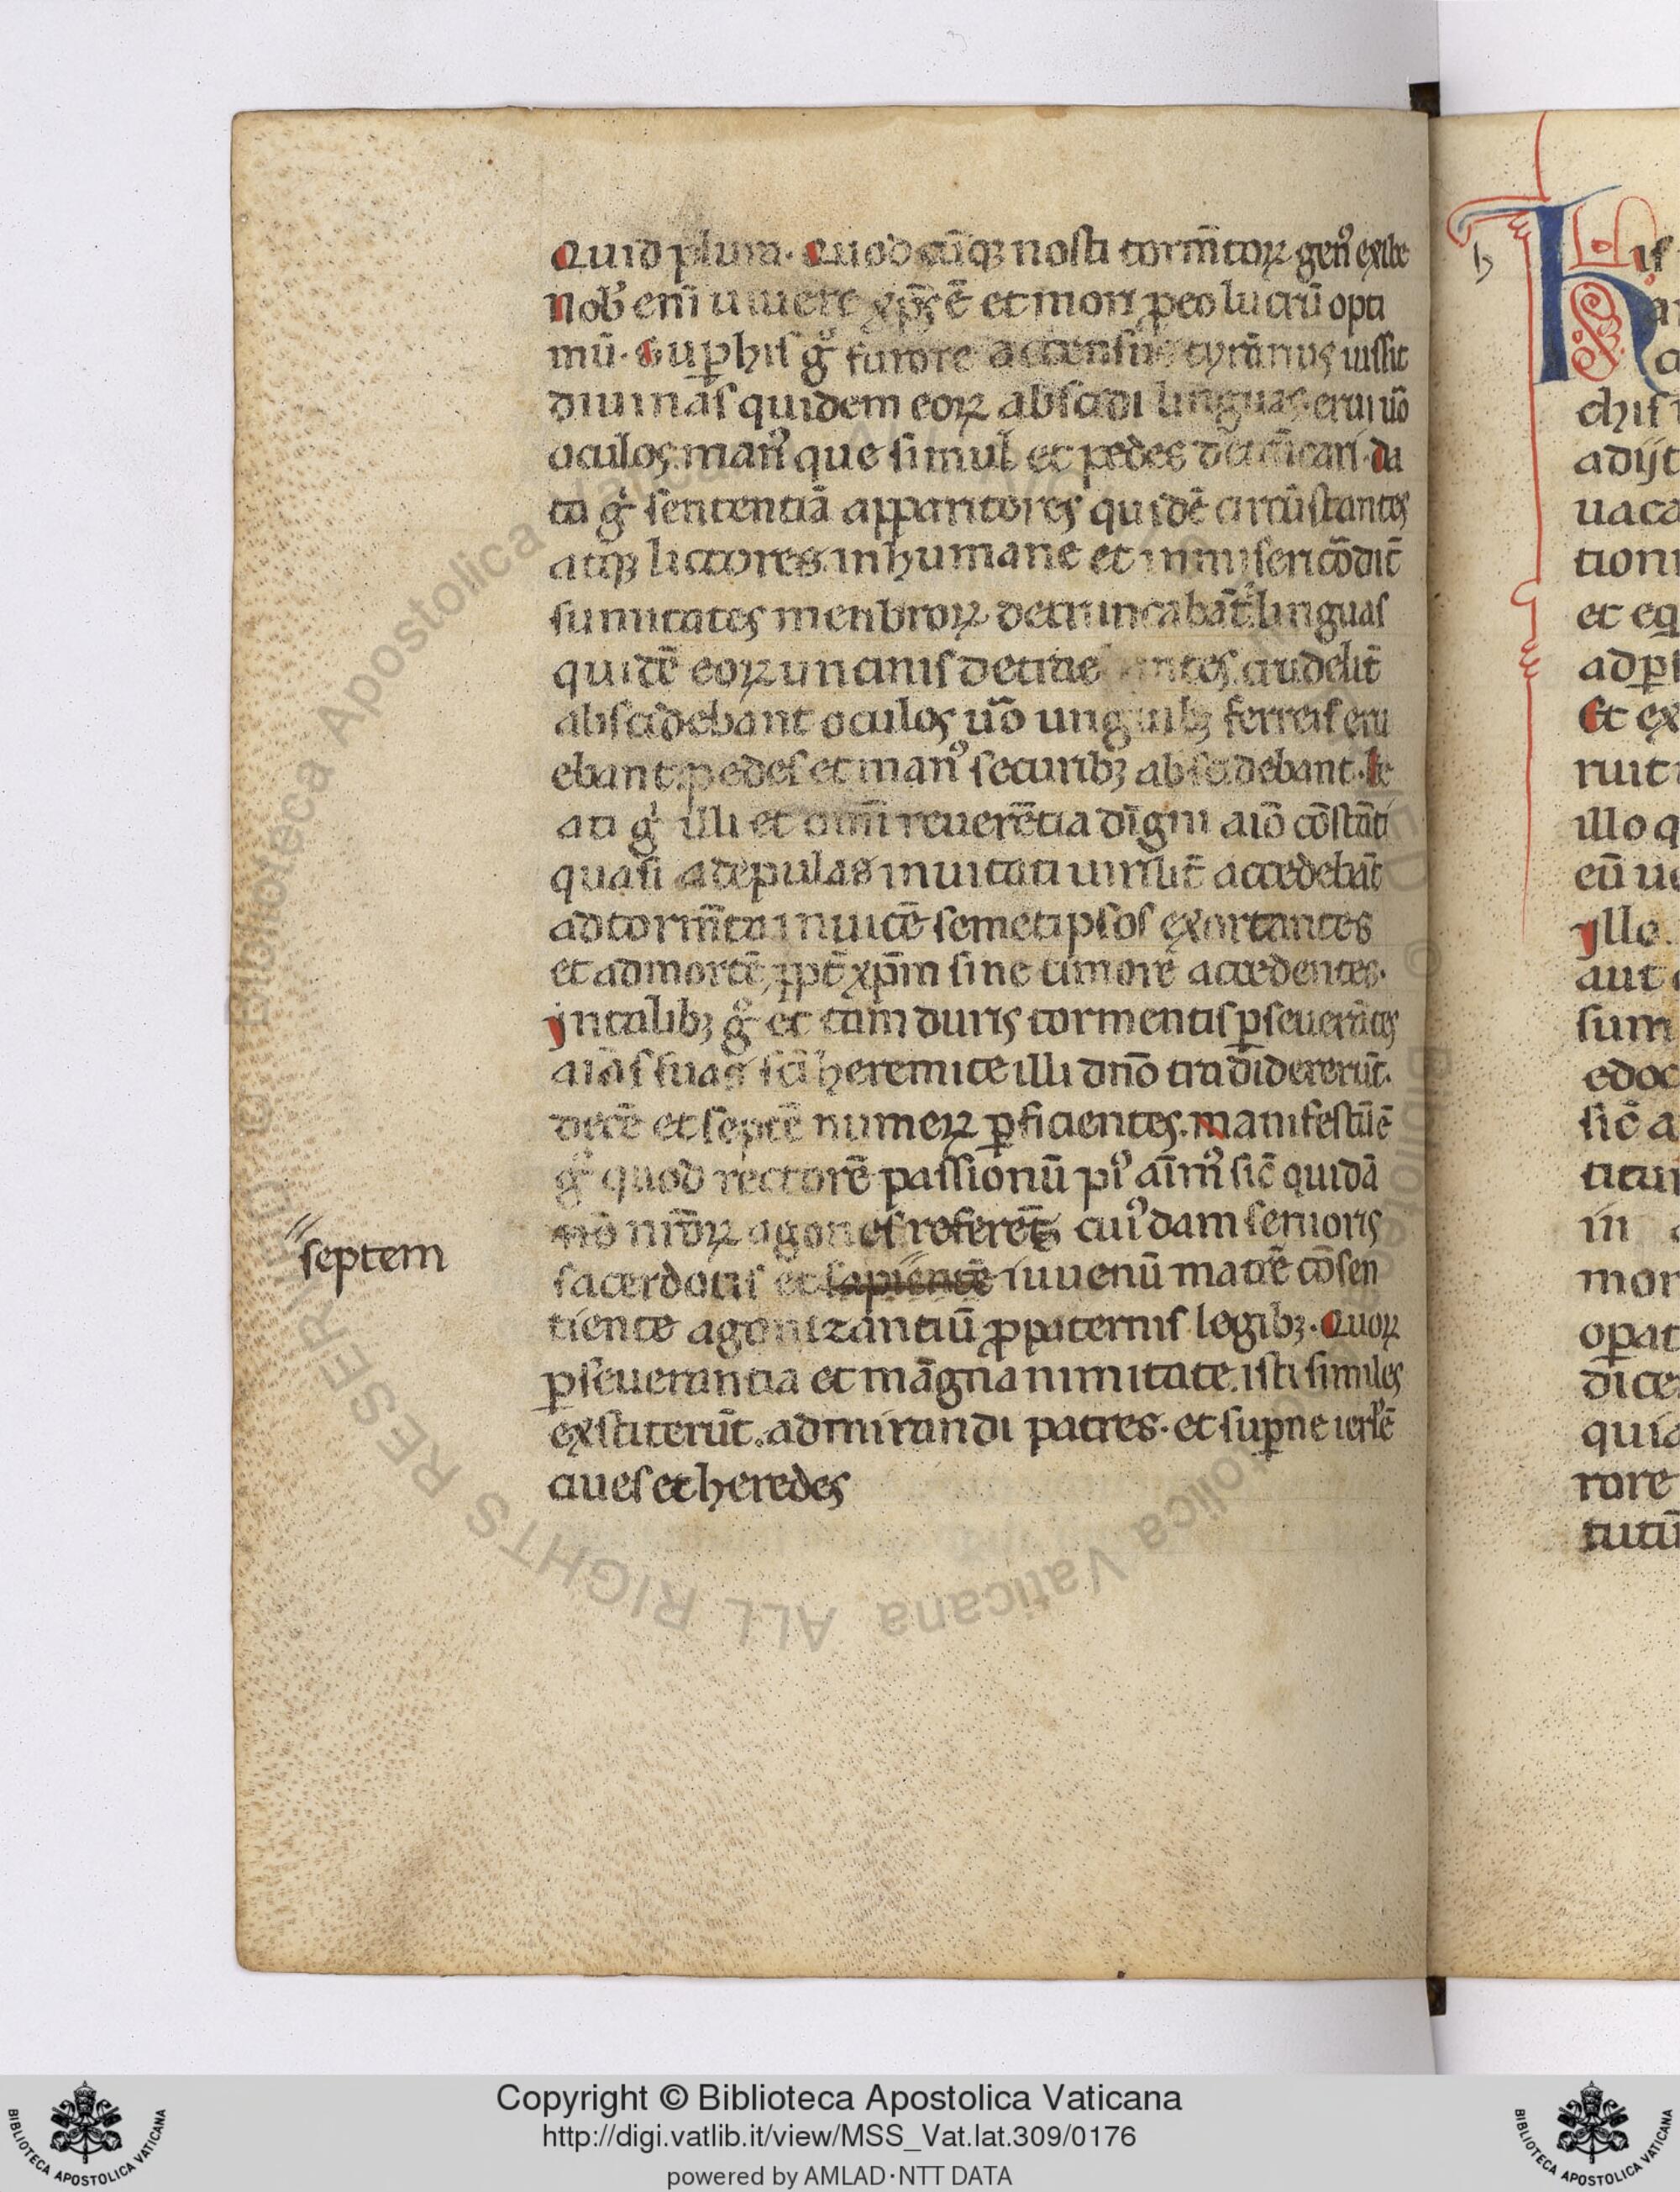 Quid plura. Quodcūqꝫ nosti tormētoꝝ genꝰ exibe
Nob̕ enī uiuere xp̄ꝫ ē et mori ꝓ eo lucrū opti
mū. Suꝑ his gͦ furore accensus tyrānus iussit
diuinas quidem eoꝝ abscidi linguas. erui uō
oculos. manꝰ que simul et pedes
ta gͦ sententiā apparitores quidē circūstantes
atqꝫ lictores. inhumane et inmisericōdit̄
sumitates menbroꝝ detruncabāt. linguas
quidē eoꝝ uncinis crudelit̄
abscidebant oculos uō unguibꝫ ferreis eru
ebant. pedes et manꝰ securibꝫ abscidebant. Be
ati gͦ illi et omī reuerētia digni aīo cōstāti
quasi ad epulas inuitati uirilit̄ accedebāt
ad tormēta inuicē semetipsos exortantes
et ad mortē ꝓpt̄ xp̄m sine timore accedentes.
Jn talibꝫ gͦ et tam duris tormentis ꝑseuerātes
aīas suas sc̄i heremite illi dn̄o tradidererūt.
decē et septē numeꝝ ꝑficientes. Manifestū ē
gͦ quod rectorē passionū piꝰ aīmꝰ sic̄ quidā
nō nr̄oꝝ agones referēt cuiꝰdam senioris
sacerdotis et sapientē iuuenū matrē cōsen
tiente agonizantiū ꝓ paternis legibꝫ. Quoꝝ
ꝑseuerantia et māgnanimitate. isti similes
exstiterūt. admirandi patres. et suꝑne ierlē
ciues et heredes
septem
h
chis
adijt
uaca
et eq
Et ex
ruit
illo q
yllo.
aut
sum
edoc
sic̄ a
titui
in
mor
opat
dice
quia
rare
Copyright © Biblioteca Apostolica Vaticana
http://digi.vatlib.it/view/MSS_Vat.lat.309/0176
powered by AMLAD·NTT DATA
BIBLIOTECA APOSTOLICA VATICANA
BIBLIOTECA APOSTOLICA VATICANA